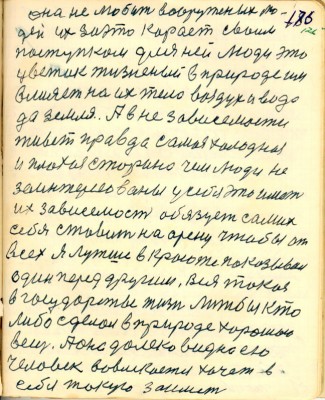 она не любит вооруженых лю- 186
дей их заэто карает своим
поступком для ней люди это
цветок жизненый в природе им
влияет на их тело воздух и вода
да земля. А в не зависемости
живет правда самая холодная
и плохая сторино чем люди не
заинтересованы у себя это имет
их зависемост обязует самих
себя ставит на арену чтобы от
всех я лутше в красоте показывал
один перед другим. Вся такая
в государстве жизн литбы кто
либо сделал в природе хорошою
вещ. Аона далеко видно ею
человек вовликости хочет в
себя такую заимет